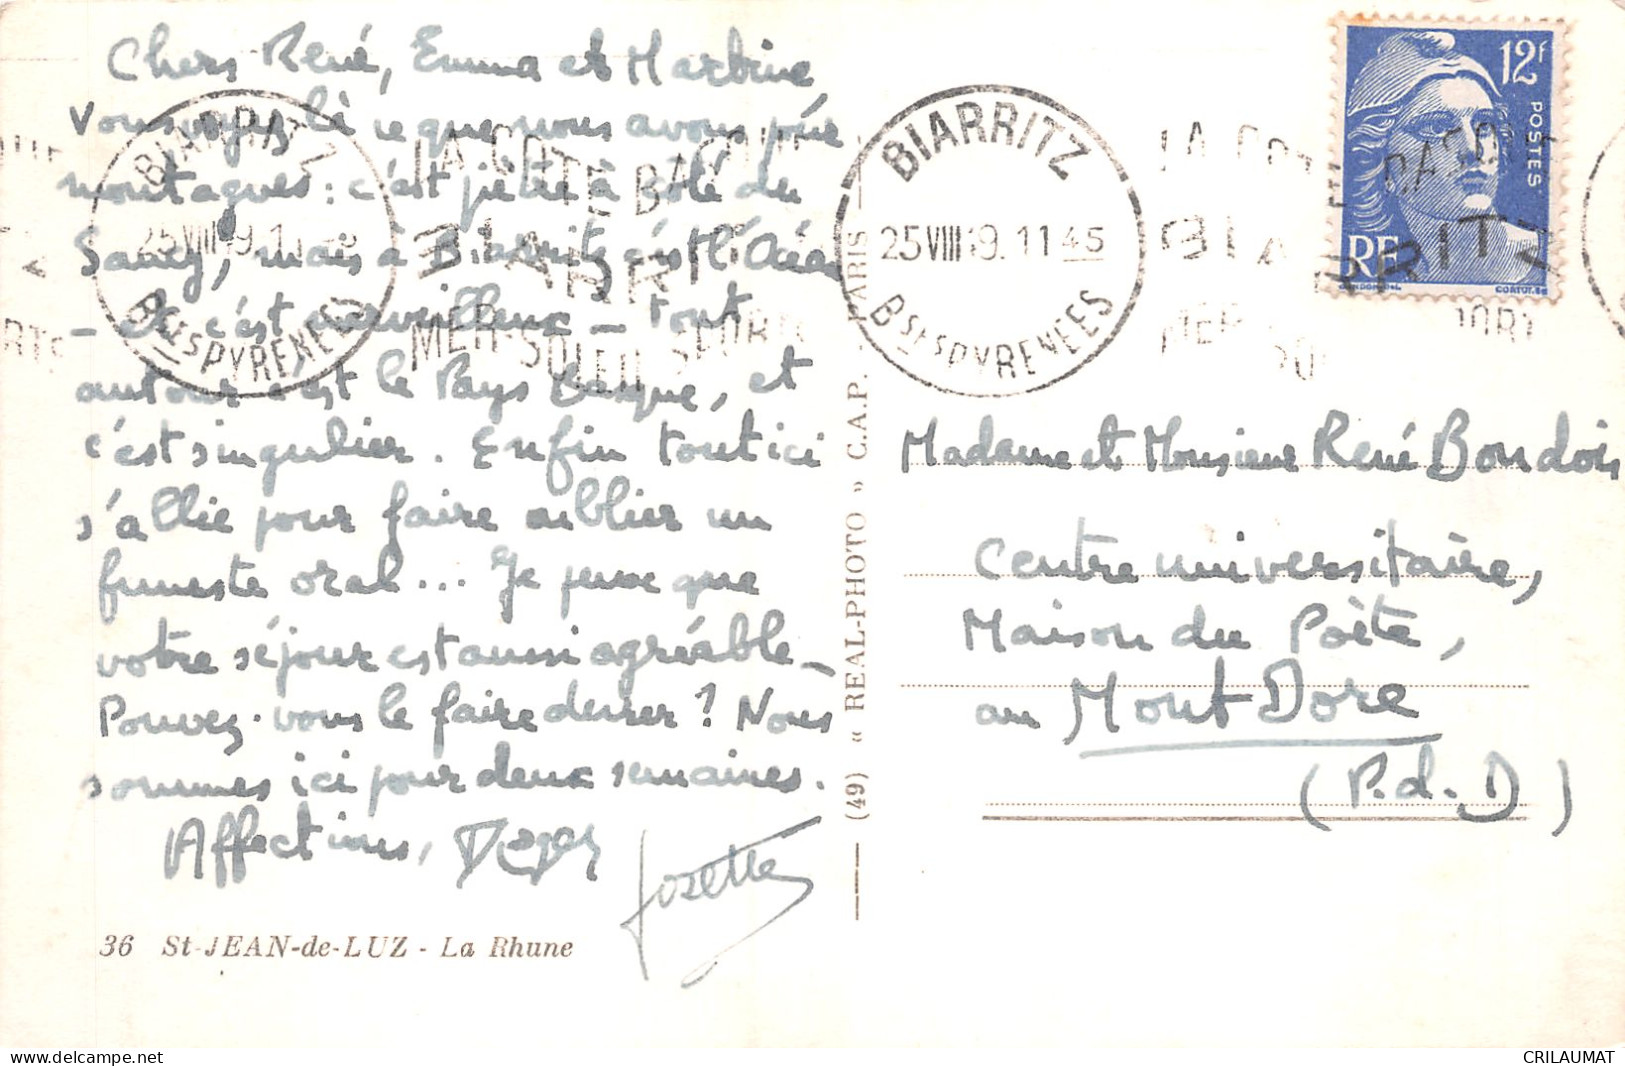 Chers René, Emma et Martine,
Vous voyez là ce que nous avons pour
montagnes : c'est piètre à côté du
Sancy, mais à Biarritz c'est l'Océan
— et c'est merveilleux — tout
autour c'est le Pays Basque, et
c'est singulier. Enfin tout ici
s'allie pour faire oublier un
funeste oral... Je pense que
votre séjour est aussi agréable —
Pouvez-vous le faire durer ? Nous
sommes ici pour deux semaines.
Affections, Roger
Josette
36 St-JEAN-de-LUZ - La Rhune
(49) « REAL-PHOTO » C.A.P. - PARIS
BIARRITZ
25 VIII 49. 11 45
Bses PYRENEES
LA COTE BASQUE
BIARRITZ
MER-SOLEIL-SPORTS
BIARRITZ
25 VIII 49. 11 45
Bses PYRENEES
12F
POSTES
RF
GANDON DEL.
CORTOT. SC
Madame et Monsieur René Bourdois
Centre universitaire,
Maison du Poète,
au Mont Dore
(P.d.D)
CRILAUMAT